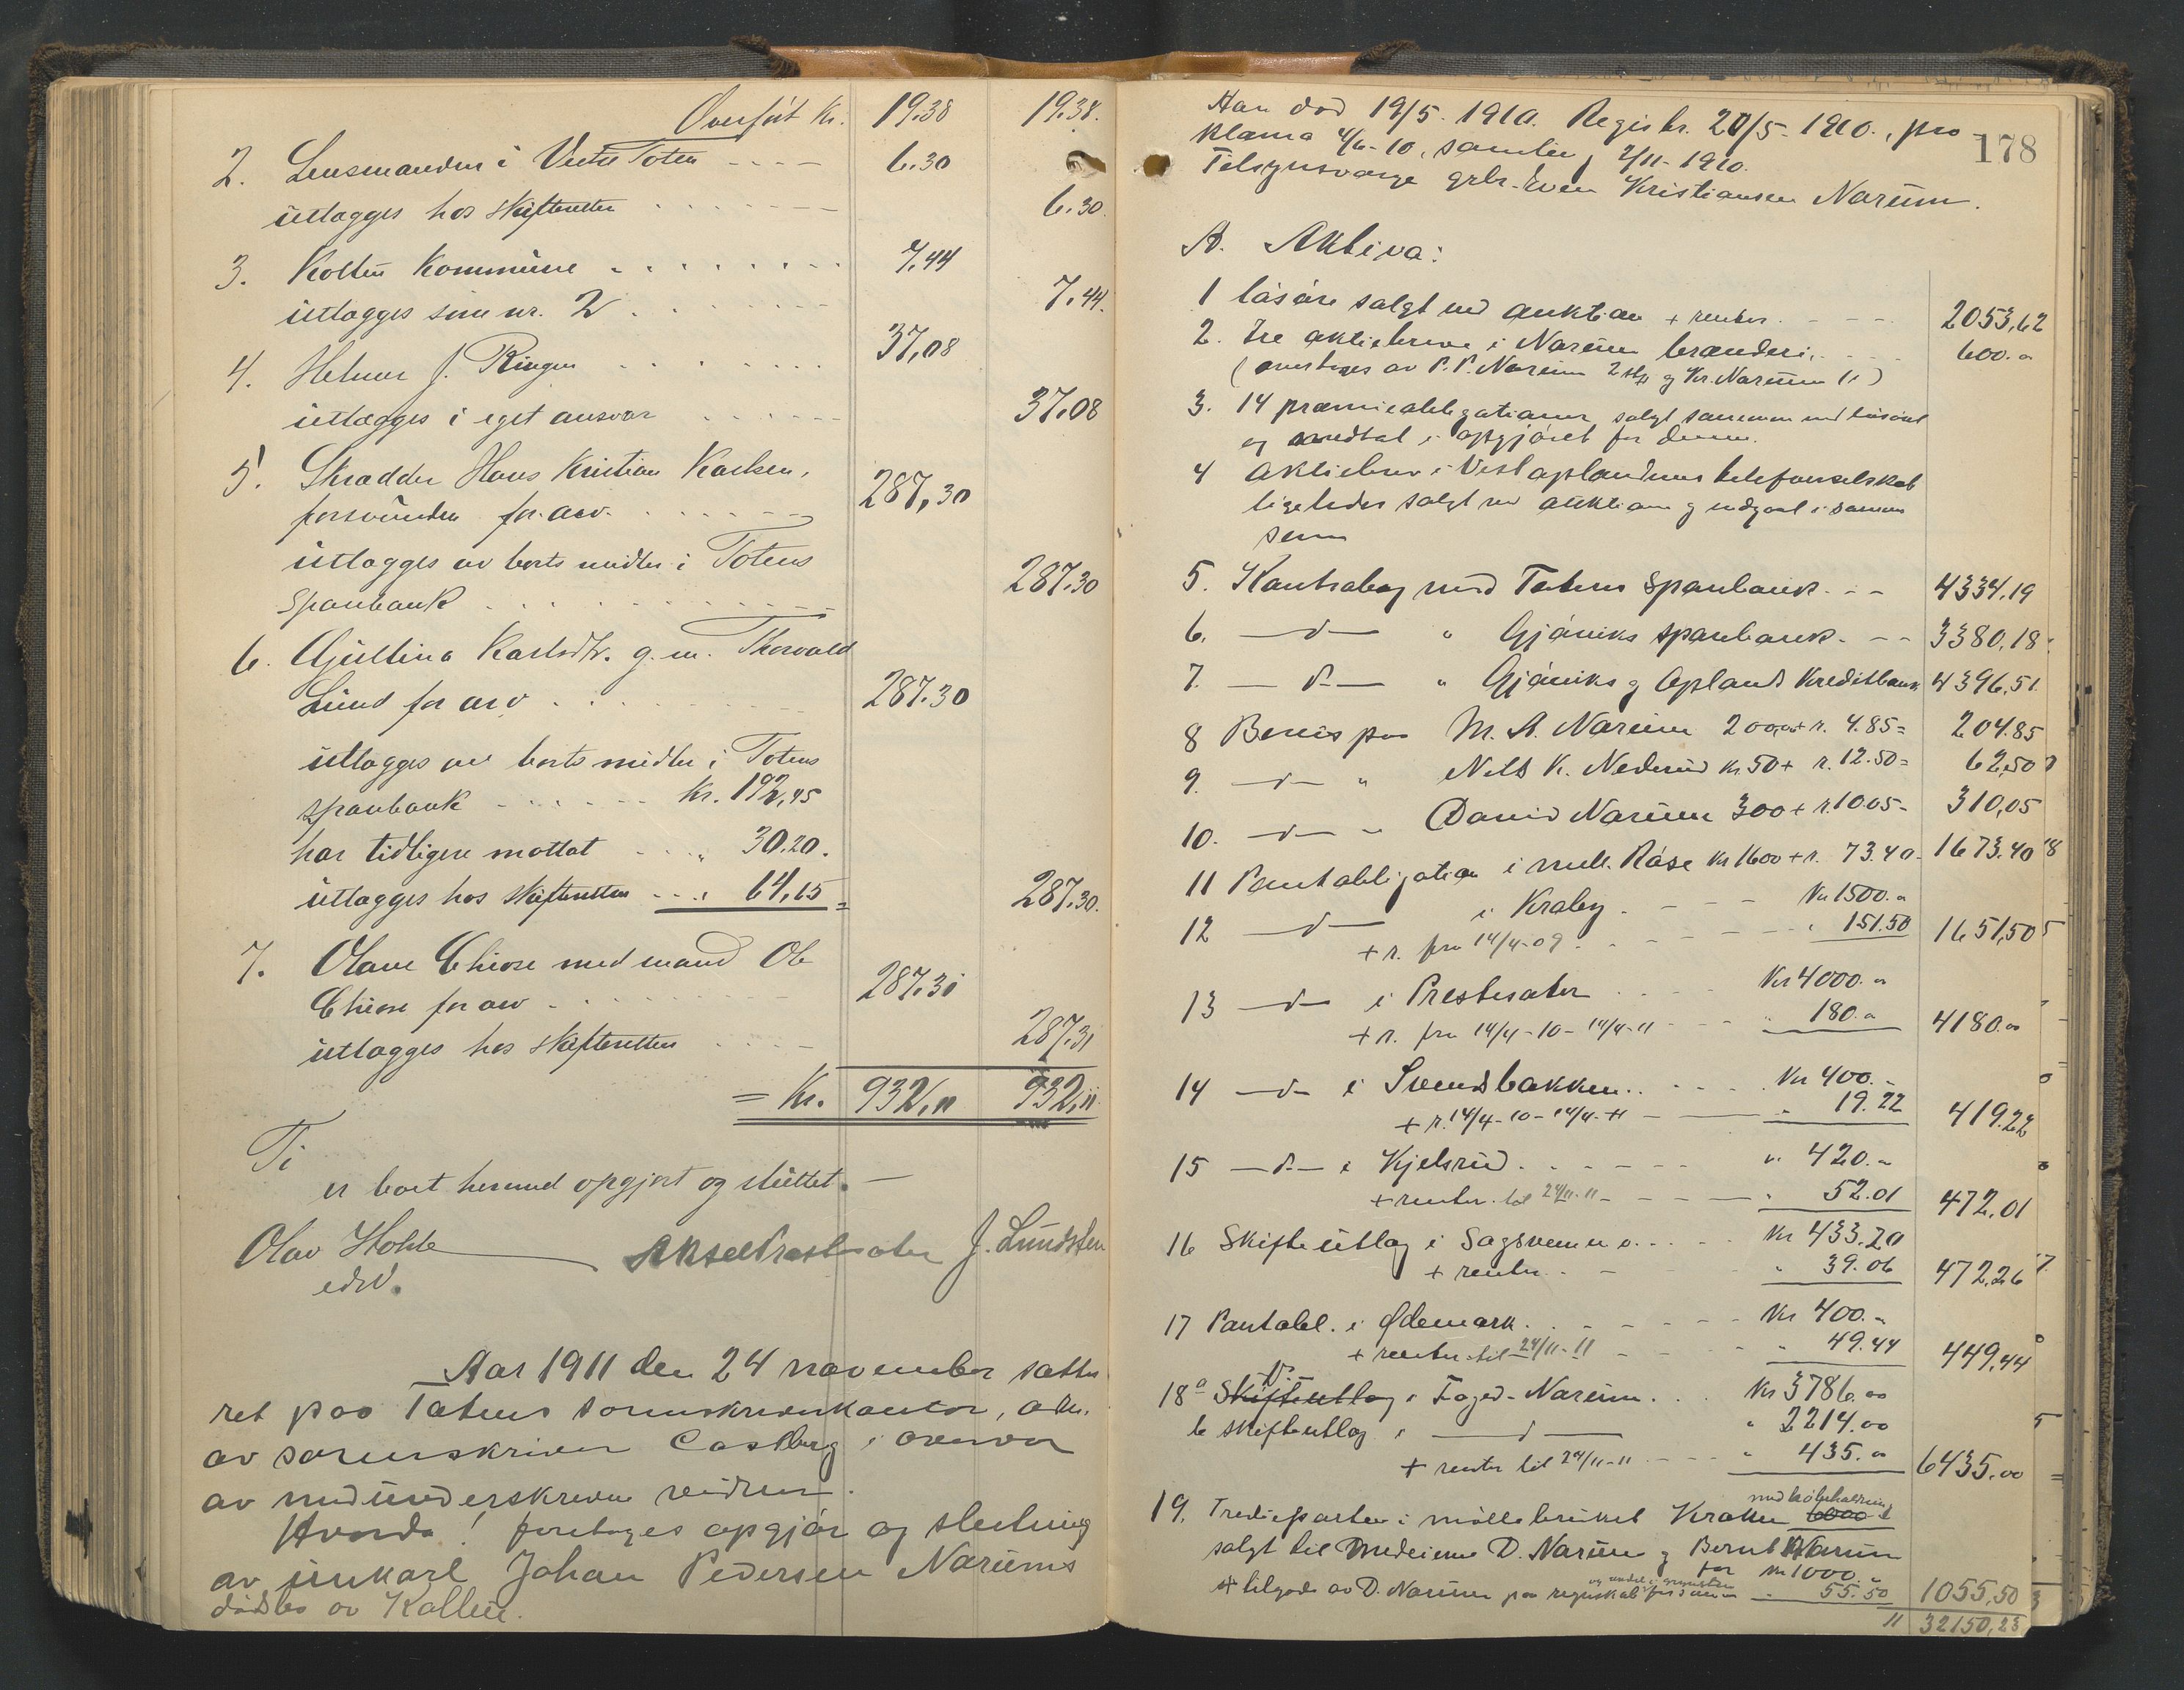 Overført Kr. 19.38 19.38.
2. Lensmanden i Vestre Toten 6.30
utlægges hos skifteretten 6.30.
3. Kolbu kommune 7,44
utlægges som nr. 2 7.44.
4. Helmer J. Ringen 37,08
utlægges i eget ansvar 37.08
5. Skrædder Hans Kristian Karlsen,
forsvunden for arv. 287,30
utlægges av boets midler i Totens
Sparebank 287.30
6. Gjultina Karlsdtr. g.m. Thorvald
Lund for arv 287.30
utlægges av boets midler i Totens
sparebank Kr. 192,95
har tidligere mottat „ 30.20.
utlægges hos skifteretten „ 64,15 = 287.30.
7. Olave Ehiose med mand Ole
Ehiose for arv 287.31
utlægges hos skifteretten 287.31
= Kr. 932,11 932,11
Ti
er boet hermed opgjort og sluttet.
Olav Hohle Aksel Præstesæter J. Lundsten
edsv.
Aar 1911 den 24 november sattes
ret paa Totens sorenskriverkontor, adm.
av sorenskriver Castberg i overvær
av medunderskrevne vidner.
Hvorda! foretages opgjør og slutning
av unkarl Johan Pedersen Narums
dødsbo av Kolbu.
178
Han død 19/5 1910. Registr. 20/5-1910., pro-
klama 4/6-10, samling 2/11-1910.
Tilsynsværge grbr. Even Kristiansen Narum.
A. Aktiva:
1 løsøre salgt ved auktion + renter. 2053,62
2. Tre aktiebreve i Narum brænderi. 600.-
(overtages av P. P. Narum 2 stk og Kr. Narum 1)
3. 14 præmieobligationer salgt sammen med løsøret
og medtat i opgjøret for denne.
4 Aktiebrev i Vestoplandenes telefonselskab
ligeledes salgt ved auktion og indgaat i samme
sum
5. Kontrabog med Totens Sparebank 4334,19
6. —d— " Gjøviks sparebank. 3380,18
7. —d— " Gjøviks og Oplands Kreditbank 4396,51
8 Bevis paa M. A. Narum 200,00 + r. 4.85= 204.85
9. —d— " Nils K. Nederud kr 50 + r. 12.50= 62,50
10. —d— " David Narum 300 + r. 10.05= 310,05
11 Pantobligation i mell. Røse kr 1600 + r. 73.40 1673.40
12 —d— i Kraby. Kr 1500.-
+ r. fra 14/4-09 151.50 1651,50
13 —d— i Prestesæter Kr 4000.-
+ r. fra 14/4-10-14/4-11 180.- 4180.00
14 —d— i Svendsbakken. Kr 400.-
+ r. 14/4-10-14/4-11 19.22 419.22
15 —d— i Kjelsrud. " 420.-
+ renter til 24/11-11 52.01 472,01
16 Skifteutlæg i Sagsvenn o. Kr 433.20
+ renter. 39.06 472.26
17 Pantobl. i Ødemark. Kr 400.-
+ renter til 24/11-11 " 49.44 449,44
18 a Skifteutlæg i Foged-Narum. Kr 3786.00
b skifteutlæg i —d— " 2214.00
+ renter til 24/11-11 " 435.- 6435.00
19. Tredieparten i møllebruket Kraken
salgt til medeierne D. Narum og Bernt Narum
for Kr 1000.-
+ tilgode av D. Narum paa regnskab " 55.50 1055,50
32150,23